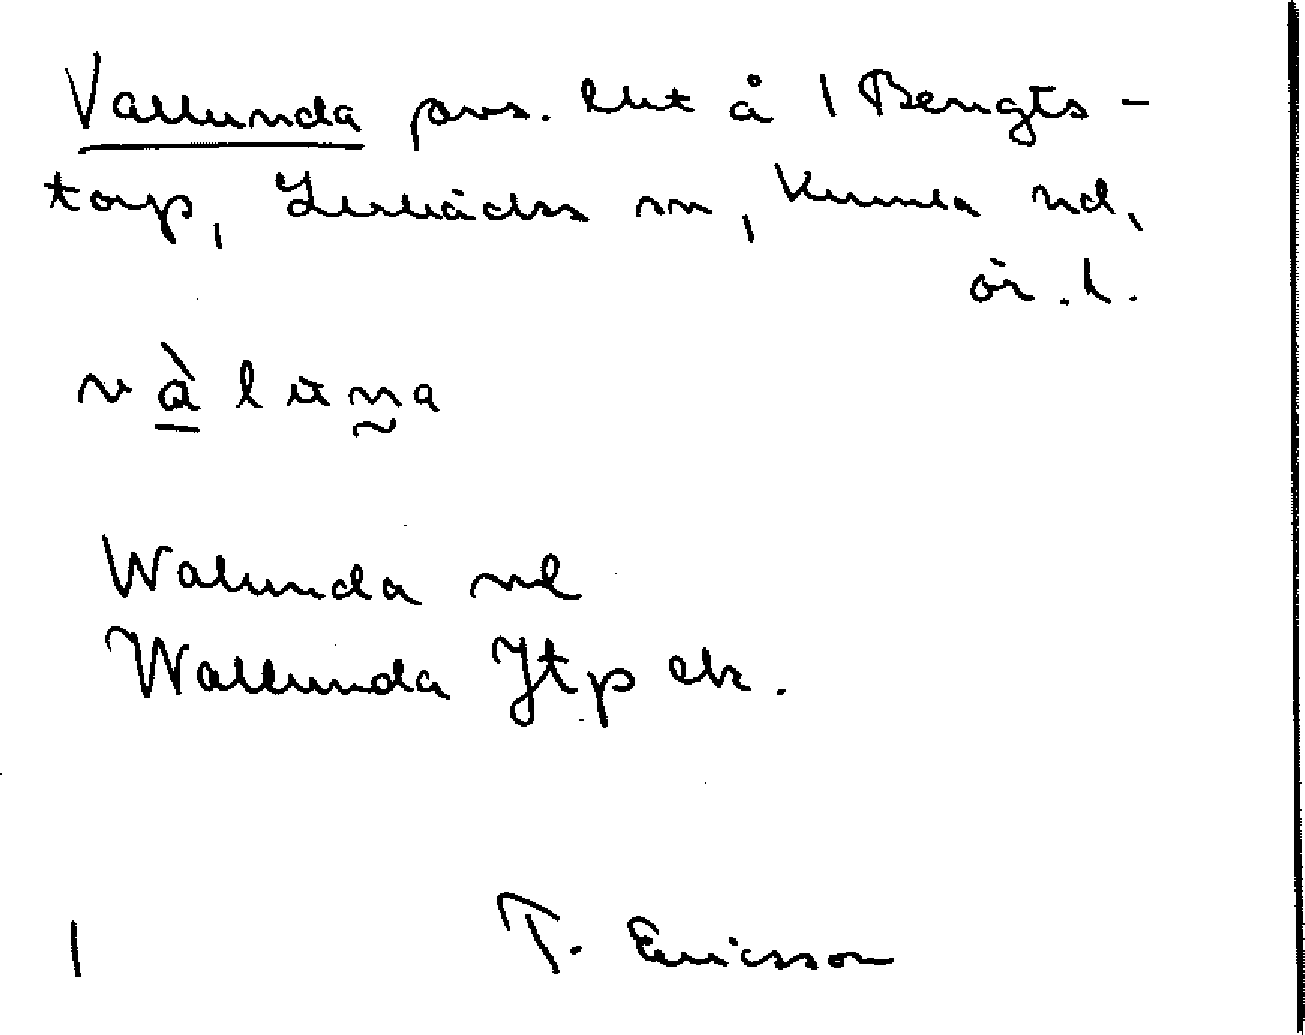 Vallunda prs. lht å 1 Bengts-
torp, Lerbäcks sn, Kumla hd,
ör. l.
v à l u n a
Walunda vl
Wallunda Jtp ek.
1 T. Ericsson